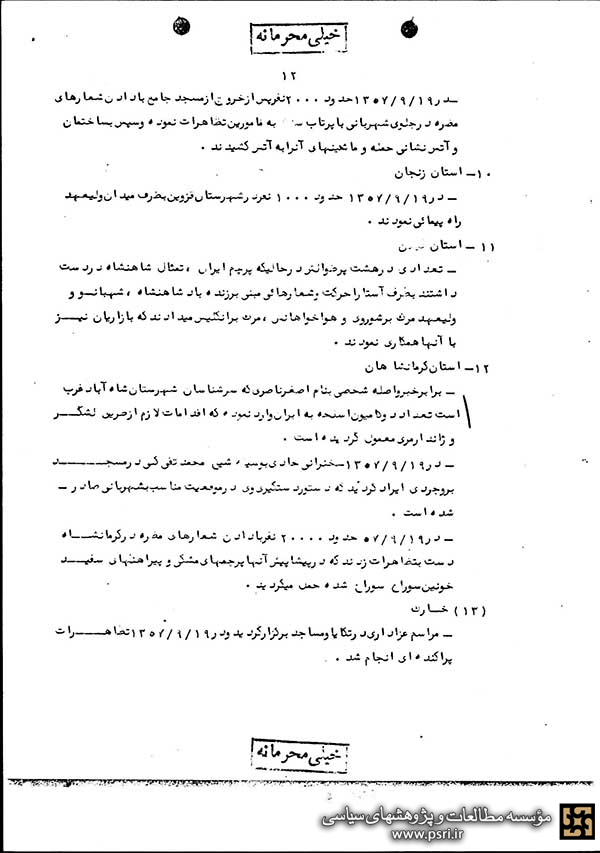 خیلی محرمانه
۱۲
ـ در ۱۳۵۷/۹/۱۹ حدود ۲۰۰۰ نفر پس از خروج از مسجد جامع با دادن شعارهای
مضره در جلوی شهربانی با پرتاب به مامورین تظاهرات نموده و سپس بساختمان
و آتش نشانی حمله و ماشینهای آنرا به آتش کشیدند .
۱۰ـ استان زنجان
ـ در ۱۳۵۷/۹/۱۹ حدود ۱۰۰۰ نفر در شهرستان قزوین بطرف میدان ولیعهد
راه پیمائی نمودند .
۱۱ ـ استان
ـ تعدادی در هشت پر طوالش در حالیکه پرچم ایران ، تمثال شاهنشاه در دست
داشتند بطرف آستارا حرکت و شعارهائی مبنی بر زنده باد شاهنشاه ، شهبانو و
ولیعهد مرگ بر شوروی و هواخواهانش ، مرگ بر انگلیس میدادند که بازاریان نیز
با آنها همکاری نمودند .
۱۲ـ استان کرمانشاهان
ـ برابر خبر واصله شخصی بنام اصغر ناصری که سرشناسان شهرستان شاه آباد غرب
است تعداد دو کامیون اسلحه به ایران وارد نموده که اقدامات لازم از طریق لشگر
و ژاندارمری معمول گردیده است .
ـ در ۱۳۵۷/۹/۱۹ سخنرانی حادی بوسیله شیخ محمد تقی در مسجد
بروجردی ایراد گردید که دستور دستگیری وی در موقعیت مناسب بشهربانی صادر ـ
شده است .
ـ در ۵۷/۹/۱۹ حدود ۲۰۰۰۰ نفر با دادن شعارهای مضره در کرمانشاه
دست بتظاهرات زدند که در پیشاپیش آنها پرچمهای مشکی و پیراهنهای سفید
خونین سوراخ سوراخ شده حمل میگردید .
(۱۳) خارک
ـ مراسم عزاداری در تکایا و مساجد برگزار گردید و در ۱۳۵۷/۹/۱۹ تظاهرات
پراکنده ای انجام شد .
خیلی محرمانه
مؤسسه مطالعات و پژوهشهای سیاسی
www.psri.ir